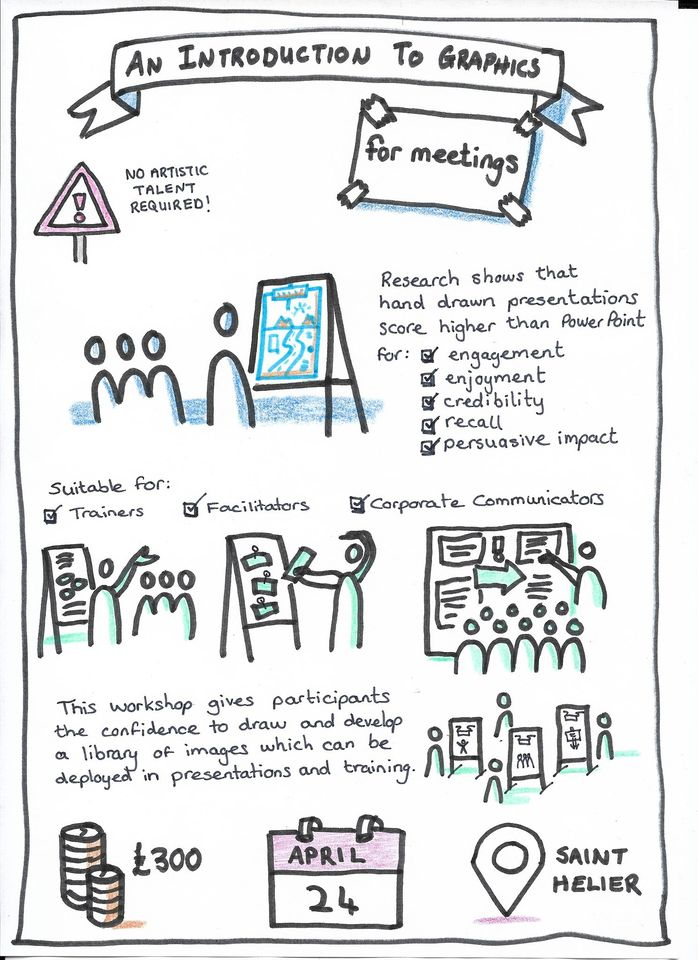 AN INTRODUCTION TO GRAPHICS
for meetings
NO ARTISTIC
TALENT
REQUIRED!
Research shows that
hand drawn presentations
score higher than PowerPoint
for: ☑ engagement
☑ enjoyment
☑ credibility
☑ recall
☑ persuasive impact
Suitable for:
☑ Trainers ☑ Facilitators ☑ Corporate Communicators
This workshop gives participants
the confidence to draw and develop
a library of images which can be
deployed in presentations and training.
£300
APRIL
24
SAINT
HELIER